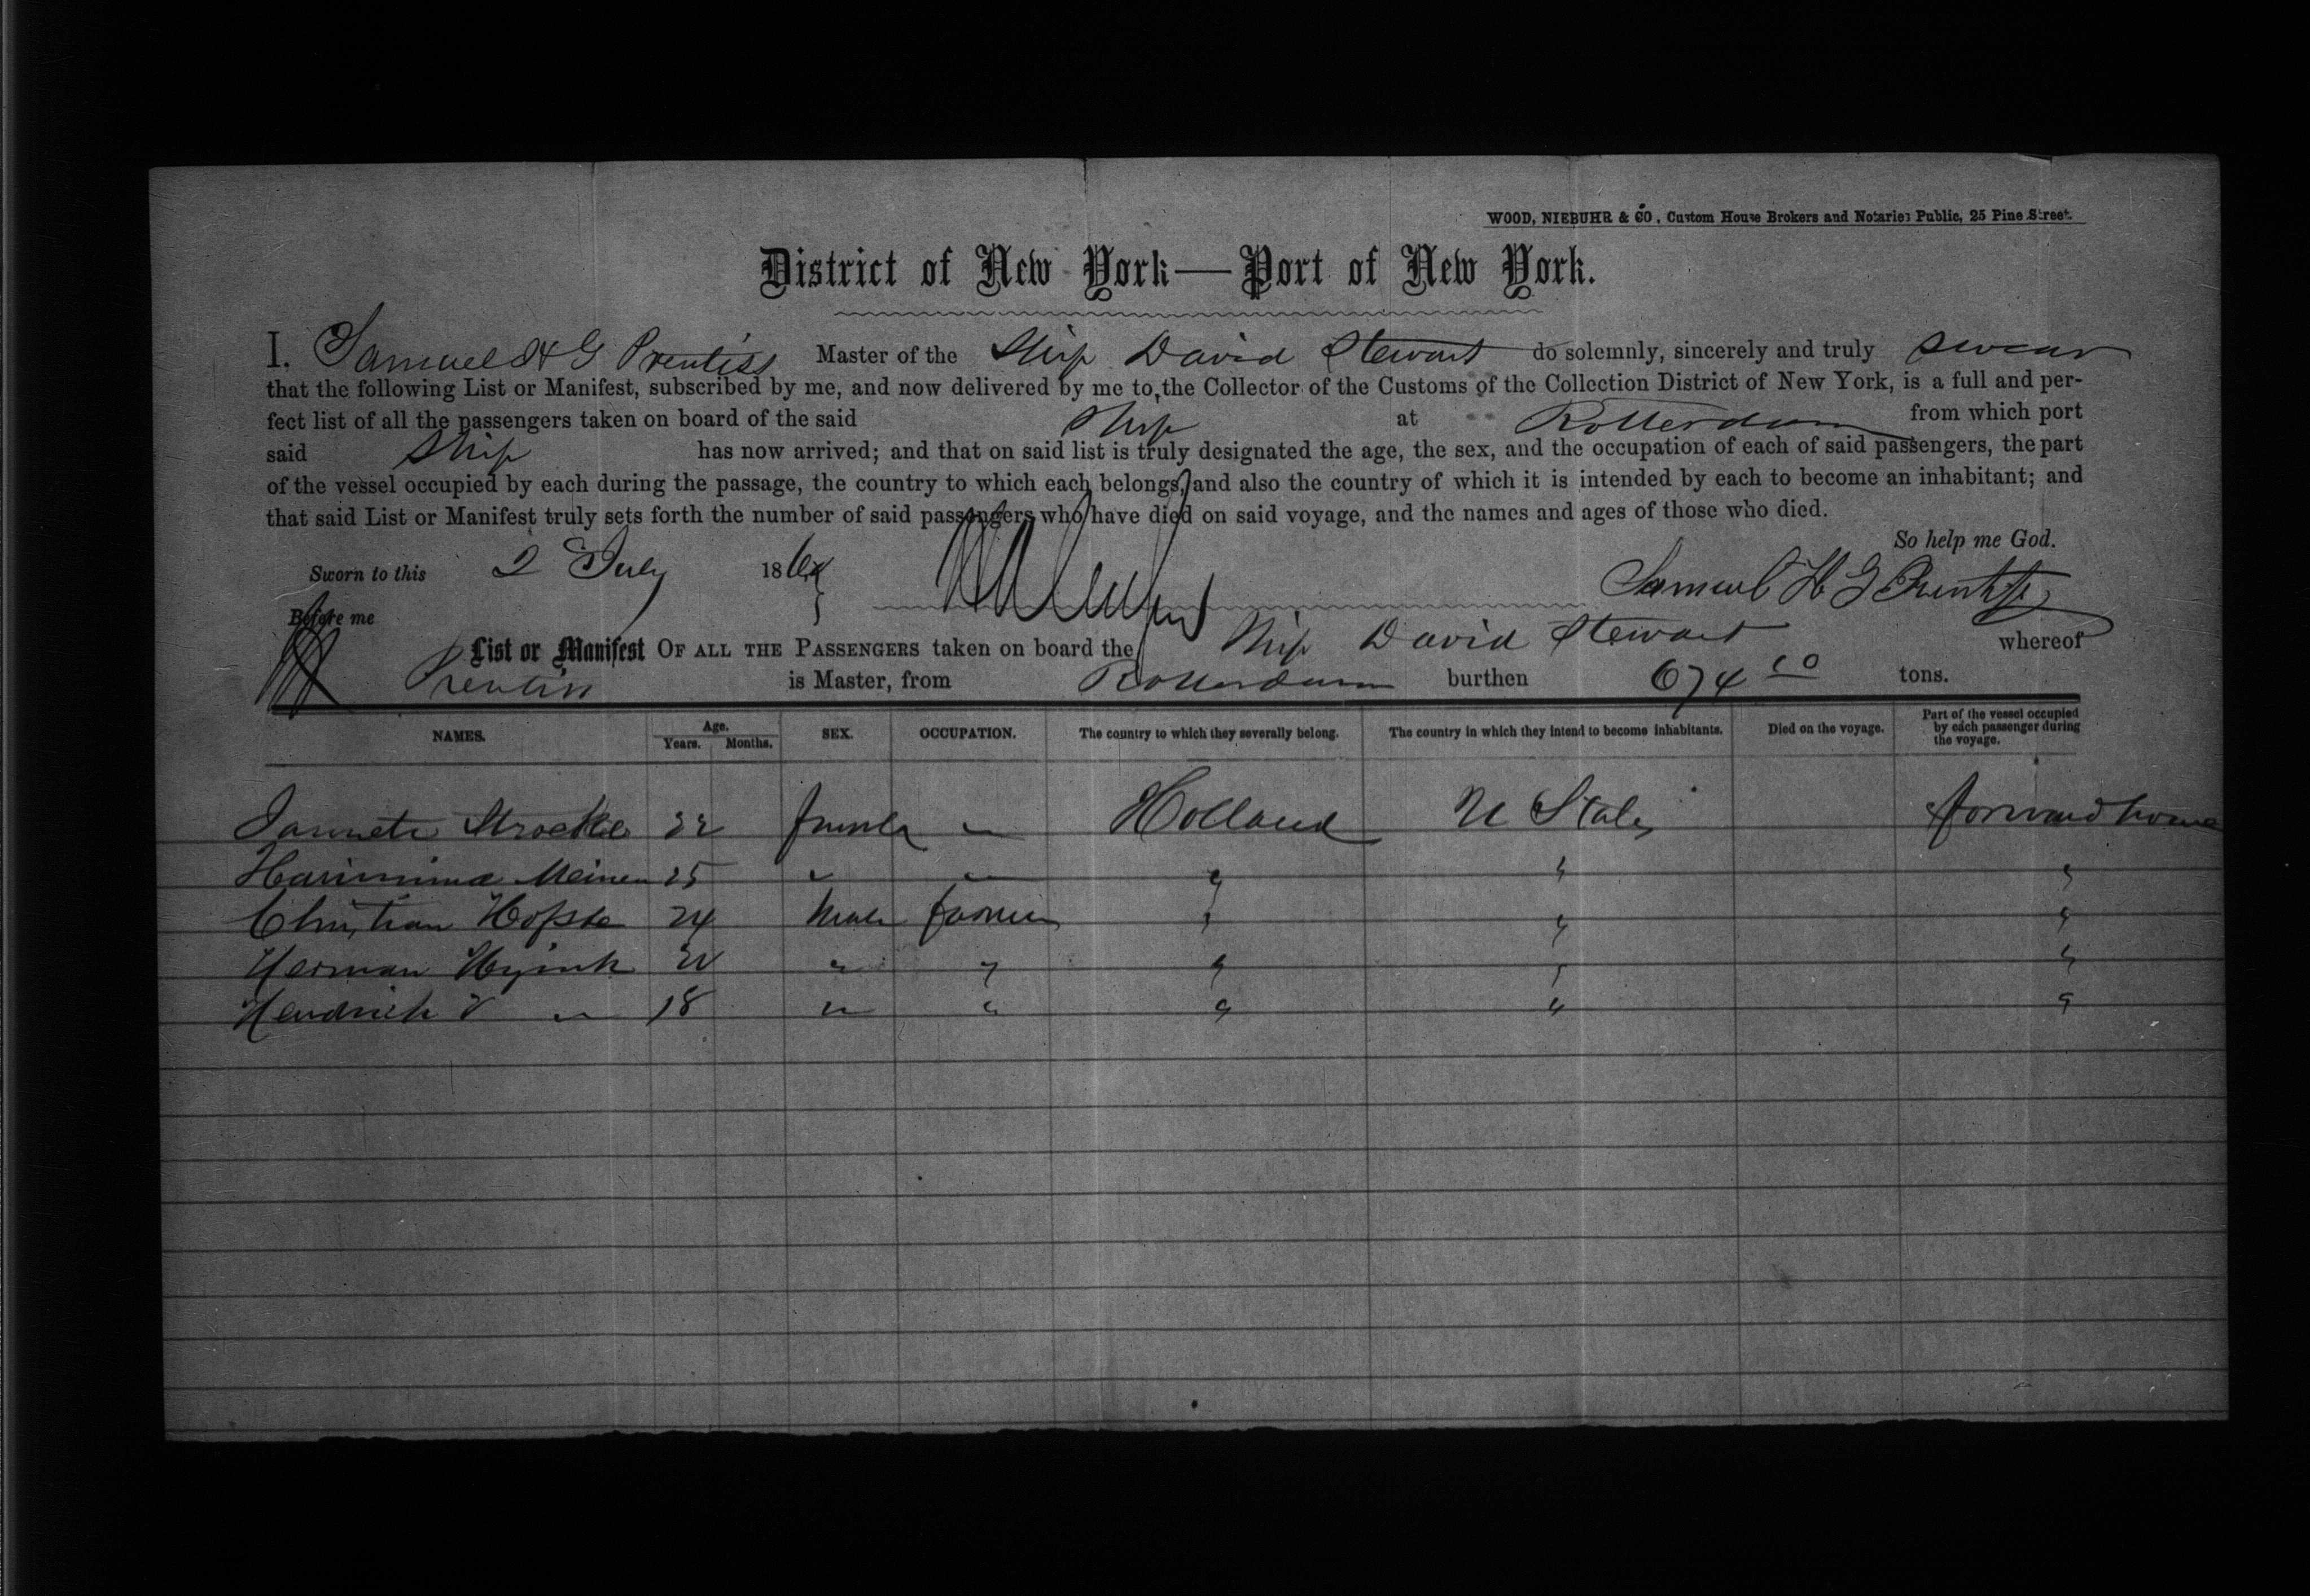 WOOD, NIEBUHR & CO, Custom House Brokers and Notaries Public, 25 Pine Street.
District of New York—Port of New York.
I, Samuel H G Prentiss Master of the Ship David Stewart do solemnly, sincerely and truly swear
that the following List or Manifest, subscribed by me, and now delivered by me to the Collector of the Customs of the Collection District of New York, is a full and per-
fect list of all the passengers taken on board of the said Ship at Rotterdam from which port
said Ship has now arrived; and that on said list is truly designated the age, the sex, and the occupation of each of said passengers, the part
of the vessel occupied by each during the passage, the country to which each belongs, and also the country of which it is intended by each to become an inhabitant; and
that said List or Manifest truly sets forth the number of said passengers who have died on said voyage, and the names and ages of those who died.
So help me God.
Sworn to this 2 July 186 Samuel H G Prentiss
Before me
List or Manifest OF ALL THE PASSENGERS taken on board the Ship David Stewart whereof
Prentiss is Master, from Rotterdam burthen 674 tons.
NAMES. Age. Years. Months. SEX. OCCUPATION. The country to which they severally belong. The country in which they intend to become inhabitants. Died on the voyage. Part of the vessel occupied by each passenger during the voyage.
22 female Holland U States forward house
25 " " " "
Christian 24 Male farmer " " "
Herman " " " " "
Hendrick " 18 " " " " "